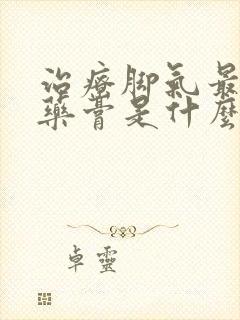 治療脚氣最
藥膏是什麽
卓靈